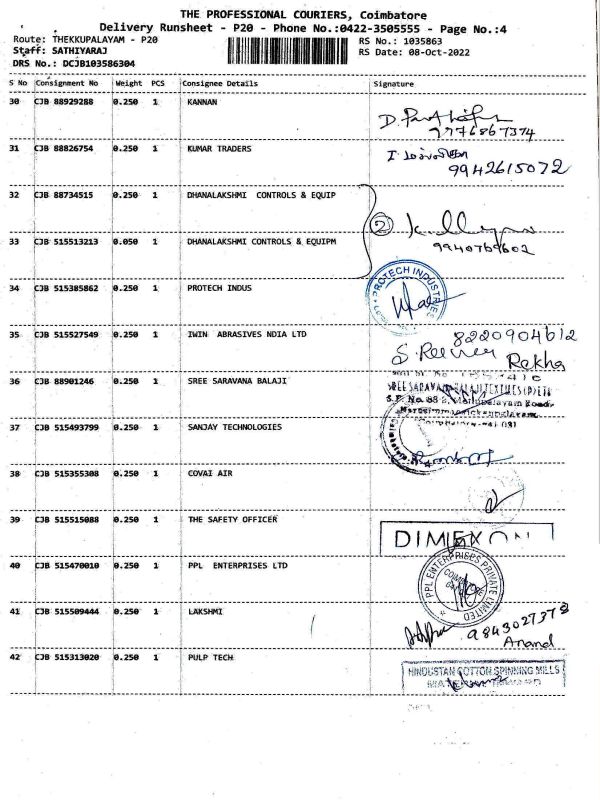 THE PROFESSIONAL COURIERS, Coimbatore
Delivery Runsheet - P20 - Phone No.:0422-3505555 - Page No.:4
Route: THEKKUPALAYAM - P20
RS No.: 1035863
Staff: SATHIYARAJ
RS Date: 08-Oct-2022
DRS No.: DCJB103586304
S No Consignment No Weight PCS Consignee Details Signature
30 CJB 88929288 0.250 1 KANNAN
9776867374
31 CJB 88826754 0.250 1 KUMAR TRADERS
9942615072
32 CJB 88734515 0.250 1 DHANALAKSHMI CONTROLS & EQUIP
2
33 CJB 515513213 0.050 1 DHANALAKSHMI CONTROLS & EQUIPM
9940769602
34 CJB 515385862 0.250 1 PROTECH INDUS
PROTECH INDUSTRIES
35 CJB 515527549 0.250 1 IWIN ABRASIVES NDIA LTD
8220904612
Rekha
36 CJB 88901246 0.250 1 SREE SARAVANA BALAJI
37 CJB 515493799 0.250 1 SANJAY TECHNOLOGIES
38 CJB 515355308 0.250 1 COVAI AIR
39 CJB 515515088 0.250 1 THE SAFETY OFFICER
DIMEXON
40 CJB 515470010 0.250 1 PPL ENTERPRISES LTD
PPL ENTERPRISES PRIVATE LIMITED
COIMBATORE
41 CJB 515509444 0.250 1 LAKSHMI
9843027378
Anand
42 CJB 515313020 0.250 1 PULP TECH
HINDUSTAN COTTON SPINNING MILLS